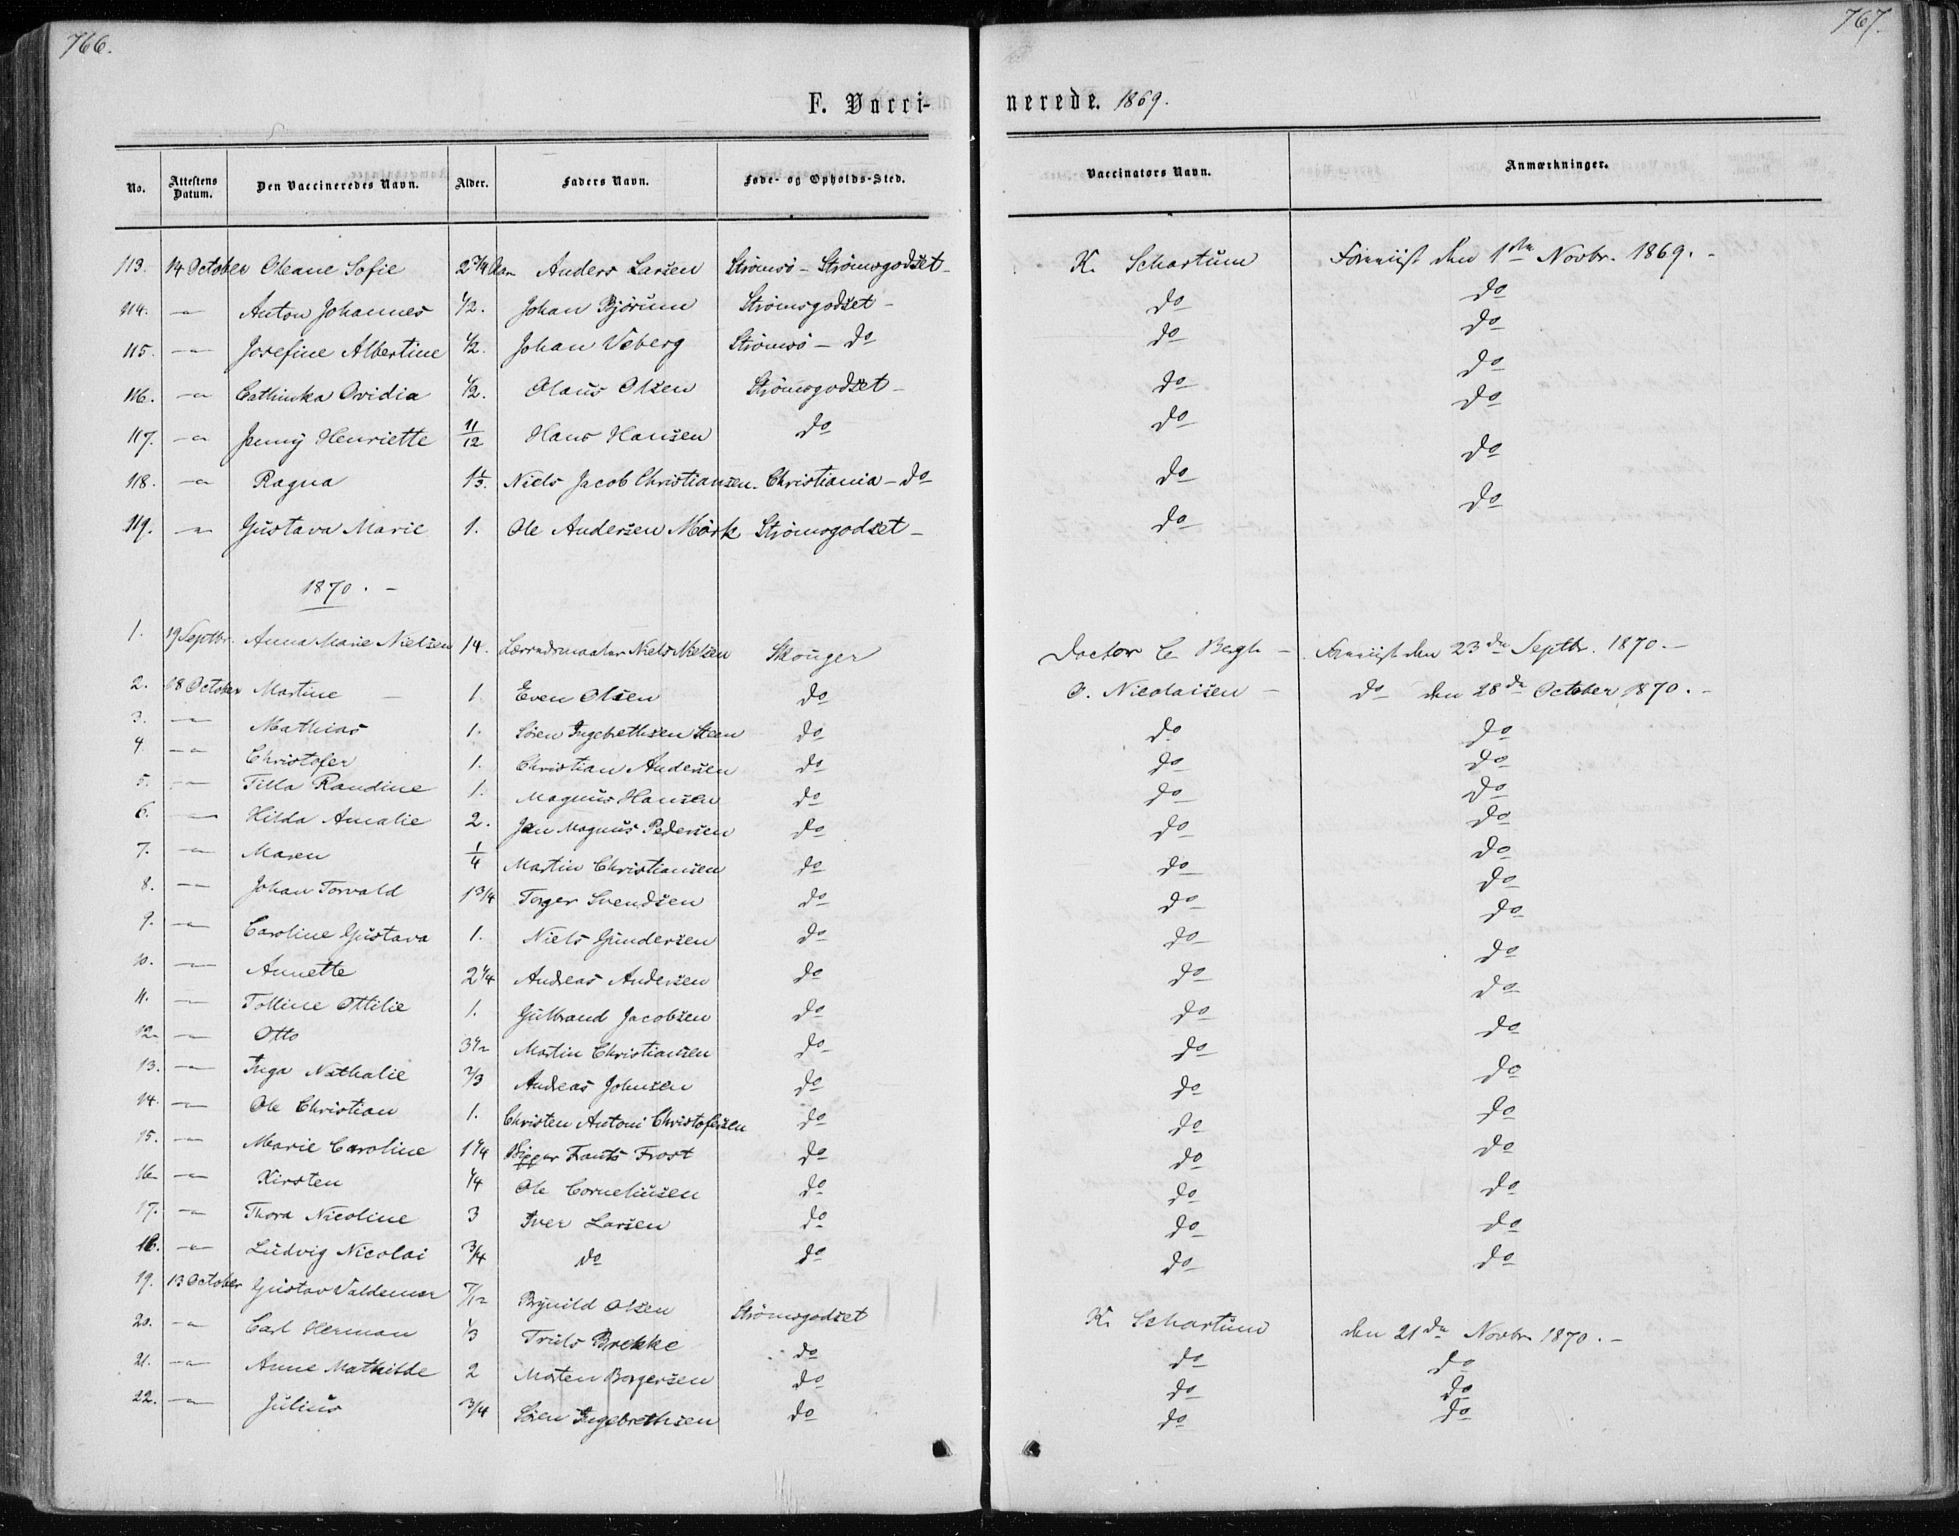 766.
767.
F. Vacci-
nerede. 1869.
No. Attestens Datum. Den Vaccineredes Navn. Alder. Faders Navn. Føde- og Opholds-Sted. Vaccinators Navn. Anmærkninger.
113. 14 October Oleane Sofie 2 3/4 Aar Anders Larsen Strömsö - Strömsgodset - K. Schartum den 1ste Novbr. 1869. -
114. -"- Anton Johannes 1/2. Johan Bjørum Strömsgodset - do do
115. -"- Josefine Albertine 1/2. Johan Veberg Strömsö - do do do
116. -"- Cathinka Ovidia 1/2. Olaus Olsen Strömsgodset - do do
117. -"- Jenny Henriette 11/12 Hans Hansen do do do
118. -"- Ragna Niels Jacob Christiansen. Christiania - do do do
119. -"- Gustava Marie 1. Ole Andersen Mörk Strömsgodset - do do
1870. -
1. 19 Septbr. Anna Marie Nielsen 14. Niels Nielsen Skouger Doctor C. Bergh - den 23de Septbr. 1870. -
2. 18 October Martine - 1. Even Olsen do O. Nicolaisen - do den 28de October 1870. -
3. -"- Mathias 1. Sören Ingebrethsen Steen do do do
4. -"- Christofer 1. Christian Andersen do do do
5. -"- Tilla Randine 1. Magnus Hansen do do do
6. -"- Hilda Amalie 2. Jan Magnus Pedersen do do do
7. -"- Maren 1/4 Martin Christiansen do do do
8. -"- Johan Torvald 1 3/4 Torger Svendsen do do do
9. -"- Caroline Gustava 1. Niels Gundersen do do do
10. -"- Annette 2 1/4 Andreas Andersen do do do
11. -"- Tolline Ottilie 1. Gulbrand Jacobsen do do do
12. -"- Otto 3 1/2 Martin Christiansen do do do
13. -"- Inga Nathalie 2/3 Andreas Johnsen do do do
14. -"- Ole Christian 1. Christen Antoni Christofersen do do do
15. -"- Marie Caroline 1 1/4 Frants Frost do do do
16. -"- Kirsten 1/4 Ole Corneliusen do do do
17. -"- Thora Nicoline 3 Iver Larsen do do do
18. -"- Ludvig Nicolai 3/4 do do do do
19. 13 October Gustav Valdemar 7/12 Brynild Olsen Strömsgodset K. Schartum den 21de Novbr. 1870. -
20. -"- Carl Herman 1/3 Truls Brekke do do do
21. -"- Anne Mathilde 2 Morten Borgersen do do do
22. -"- Julius 3/4 Sören Ingebrethsen do do do